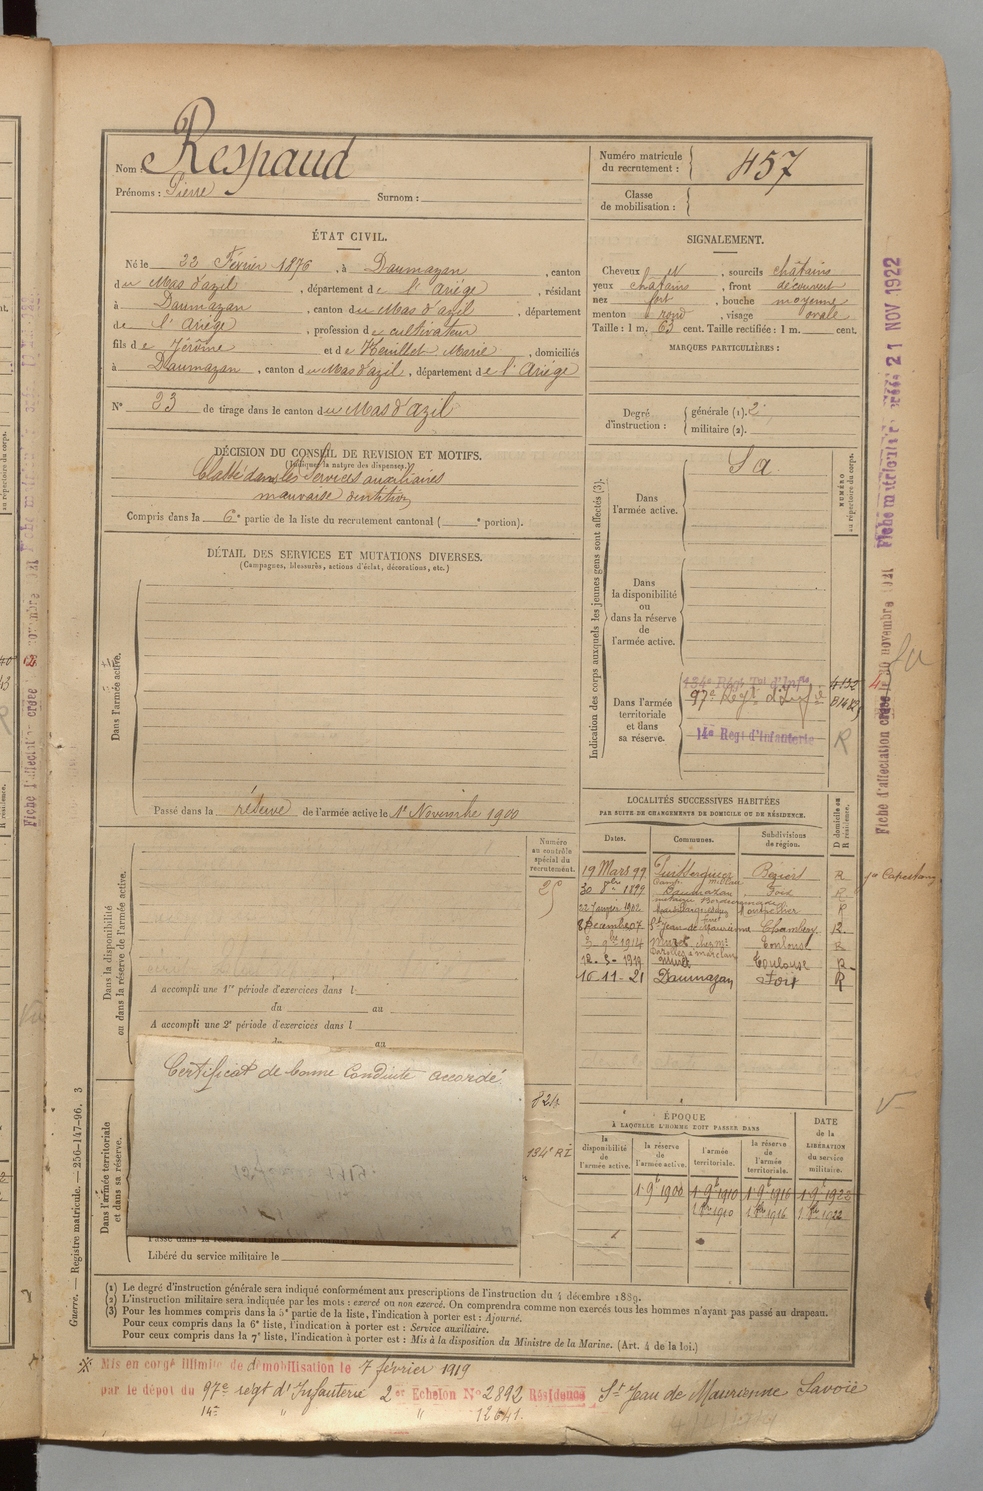 Nom : Respaud
Prénoms : Pierre Surnom :
Numéro matricule du recrutement : 457
Classe de mobilisation :
ÉTAT CIVIL.
Né le 22 Février 1876, à Daumazan, canton
du Mas d'azil, département de l'Ariège, résidant
à Daumazan, canton du Mas d'azil, département
de l'Ariège, profession de cultivateur
fils de Jérôme et de Heuillet Marie, domiciliés
à Daumazan, canton du Mas d'azil, département de l'Ariège
N° 23 de tirage dans le canton du Mas d'azil
SIGNALEMENT.
Cheveux , sourcils châtains
yeux châtains, front découvert
nez fort, bouche moyenne
menton rond, visage ovale
Taille : 1 m. 63 cent. Taille rectifiée : 1 m. cent.
MARQUES PARTICULIÈRES :
Degré d'instruction : générale (1). 2
militaire (2).
DÉCISION DU CONSEIL DE REVISION ET MOTIFS.
(Indiquer la nature des dispenses.)
Classé dans les Services auxiliaires
mauvaise dentition
Compris dans la 6e partie de la liste du recrutement cantonal ( e portion).
DÉTAIL DES SERVICES ET MUTATIONS DIVERSES.
(Campagnes, blessures, actions d'éclat, décorations, etc.)
Dans l'armée active.
Passé dans la réserve de l'armée active le 1er Novembre 1900
Indication des corps auxquels les jeunes gens sont affectés (3).
NUMÉRO au répertoire du corps.
Dans l'armée active.
S a
Dans la disponibilité ou dans la réserve de l'armée active.
Dans l'armée territoriale et dans sa réserve.
134e Régt Tal d'Infie
97e Régt d'Infie
14e Regt d'Infanterie
R
LOCALITÉS SUCCESSIVES HABITÉES
PAR SUITE DE CHANGEMENTS DE DOMICILE OU DE RÉSIDENCE.
Dates. Communes. Subdivisions de région. D domicile ou R résidence.
19 Mars 99 Puisserguier Béziers R
30 8bre 1899 Daumazan Foix R
22 Janvier 1902 Montpellier R
8 Décembre 07 St Jean de Maurienne Chambéry R
3 9bre 1914 Muret Toulouse R
12-3-1919 Muret Toulouse R
16-11-21 Daumazan Foix R
Capestang
Numéro au contrôle spécial du recrutement.
Dans la disponibilité ou dans la réserve de l'armée active.
A accompli une 1re période d'exercices dans l
du au
A accompli une 2e période d'exercices dans l
du au
Certificat de bonne Conduite accordé.
824
134e R.I
Dans l'armée territoriale et dans sa réserve.
Libéré du service militaire le
ÉPOQUE
À LAQUELLE L'HOMME DOIT PASSER DANS
la disponibilité de l'armée active. la réserve de l'armée active. l'armée territoriale. la réserve de l'armée territoriale. DATE de la LIBÉRATION du service militaire.
1er 9bre 1900 1er 9bre 1910 1er 9bre 1916 1er 9bre 1922
1 8bre 1910 1 8bre 1916 1 8bre 1922
(1) Le degré d'instruction générale sera indiqué conformément aux prescriptions de l'instruction du 4 décembre 1889.
(2) L'instruction militaire sera indiquée par les mots : exercé ou non exercé. On comprendra comme non exercés tous les hommes n'ayant pas passé au drapeau.
(3) Pour les hommes compris dans la 5e partie de la liste, l'indication à porter est : Ajourné.
Pour ceux compris dans la 6e liste, l'indication à porter est : Service auxiliaire.
Pour ceux compris dans la 7e liste, l'indication à porter est : Mis à la disposition du Ministre de la Marine. (Art. 4 de la loi.)
Mis en congé illimité de démobilisation le 7 février 1919
par le dépôt du 97e régt d'Infanterie 2e Echelon N° 2892 Résidence St Jean de Maurienne Savoie
14e " " 12641.
Guerre. — Registre matricule. — 256-147-96. 3
21 NOV 1922